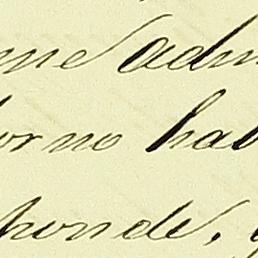 me adm
or no hab
ponde,